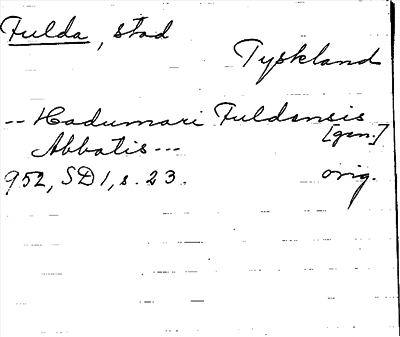 Fulda, stad
Tyskland
-- Hadumari Fuldensis
[gen.]
Abbatis ---
952, SD 1, s. 23.
orig.